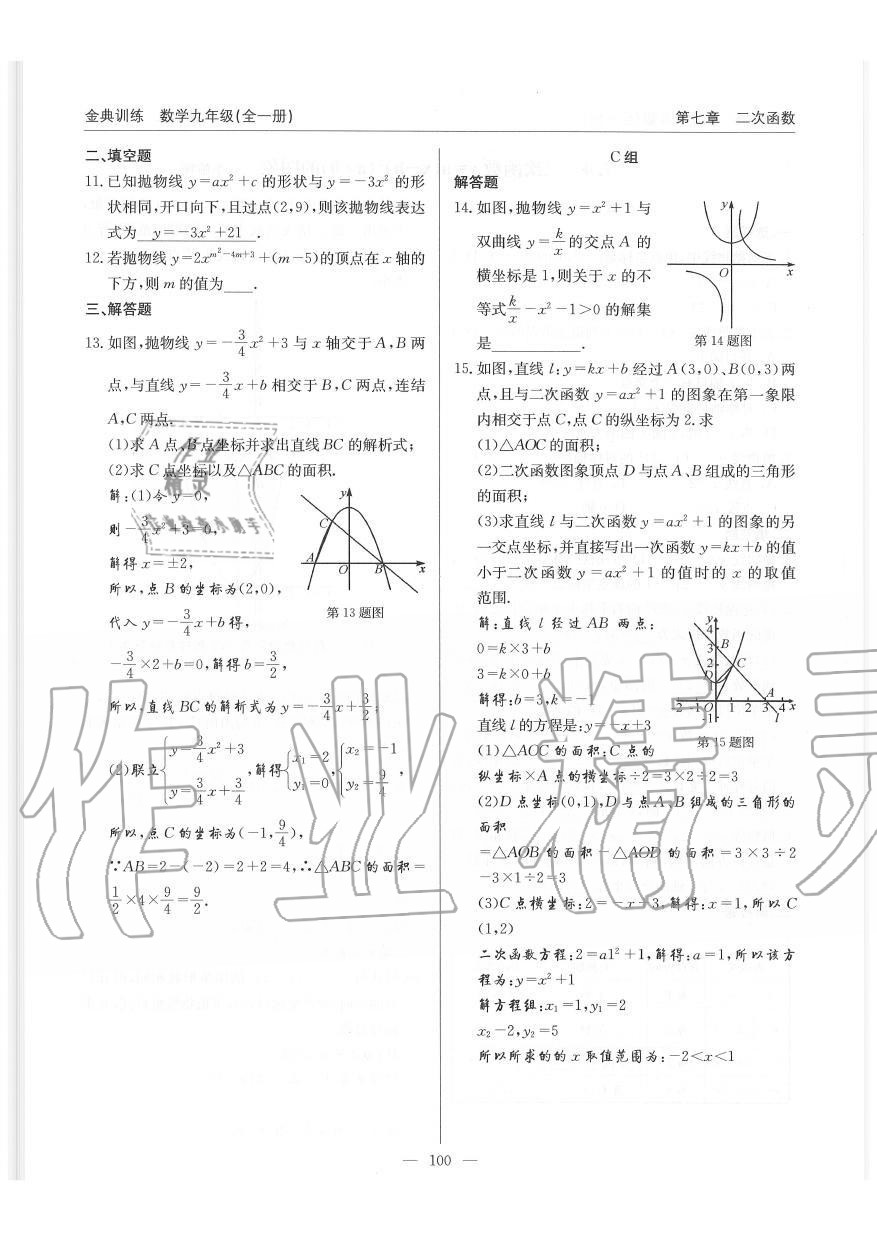 金典训练 数学九年级(全一册)
第七章 二次函数
二、填空题
11.已知抛物线 y=ax²+c 的形状与 y=-3x² 的形
状相同,开口向下,且过点(2,9),则该抛物线表达
式为 y=-3x²+21 .
12.若抛物线 y=2x^{m²-4m+3}+(m-5)的顶点在 x 轴的
下方,则 m 的值为____.
三、解答题
13.如图,抛物线 y=-3/4x²+3 与 x 轴交于 A,B 两
点,与直线 y=-3/4x+b 相交于 B,C 两点,连结
A,C 两点.
(1)求 A 点,B 点坐标并求出直线 BC 的解析式;
(2)求 C 点坐标以及△ABC 的面积.
解:(1)令 y=0,
则-3/4x²+3=0,
解得 x=±2,
所以,点 B 的坐标为(2,0),
代入 y=-3/4x+b 得,
-3/4×2+b=0,解得 b=3/2,
所以,直线 BC 的解析式为 y=-3/4x+3/2;
y C A O B x
第 13 题图
(2)联立{y=3/4x²+3 y=3/4x+3/4,解得{x₁=2 y₁=0,{x₂=-1 y₂=9/4,
所以,点 C 的坐标为(-1,9/4),
∵AB=2-(-2)=2+2=4,∴△ABC 的面积=
1/2×4×9/4=9/2.
C 组
解答题
14.如图,抛物线 y=x²+1 与
双曲线 y=k/x 的交点 A 的
横坐标是 1,则关于 x 的不
等式k/x-x²-1>0 的解集
是____________.
y O x
第 14 题图
15.如图,直线 l:y=kx+b 经过 A(3,0)、B(0,3)两
点,且与二次函数 y=ax²+1 的图象在第一象限
内相交于点 C,点 C 的纵坐标为 2.求
(1)△AOC 的面积;
(2)二次函数图象顶点 D 与点 A、B 组成的三角形
的面积;
(3)求直线 l 与二次函数 y=ax²+1 的图象的另
一交点坐标,并直接写出一次函数 y=kx+b 的值
小于二次函数 y=ax²+1 的值时的 x 的取值
范围.
解:直线 l 经过 AB 两点:
0=k×3+b
3=k×0+b
解得:b=3,k=-1
直线 l 的方程是:y=-x+3
y 4 3 B 2 C D A -2 -1 O 1 2 3 4 x -1 l
第 15 题图
(1)△AOC 的面积:C 点的
纵坐标×A 点的横坐标÷2=3×2÷2=3
(2)D 点坐标(0,1),D 与点 A、B 组成的三角形的
面积
=△AOB 的面积-△AOD 的面积=3×3÷2
-3×1÷2=3
(3)C 点横坐标:2=-x+3,解得:x=1,所以 C
(1,2)
二次函数方程:2=a1²+1,解得:a=1,所以该方
程为:y=x²+1
解方程组:x₁=1,y₁=2
x₂-2,y₂=5
所以所求的的 x 取值范围为:-2<x<1
— 100 —
作业精灵
作业
精灵